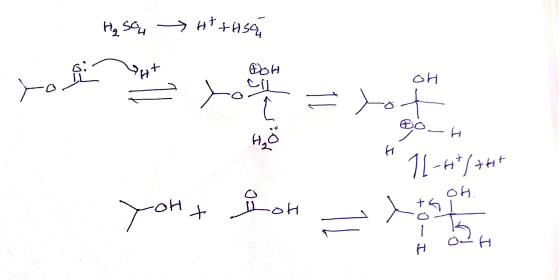 H₂SO₄ → H⁺ + HSO₄⁻
O: H⁺ ⊕OH OH
O ⇌ O ⇌ O
H₂Ö ⊕O–H
H
⇌ -H⁺/+H⁺
OH + O OH ⇌ + OH
O
H O–H